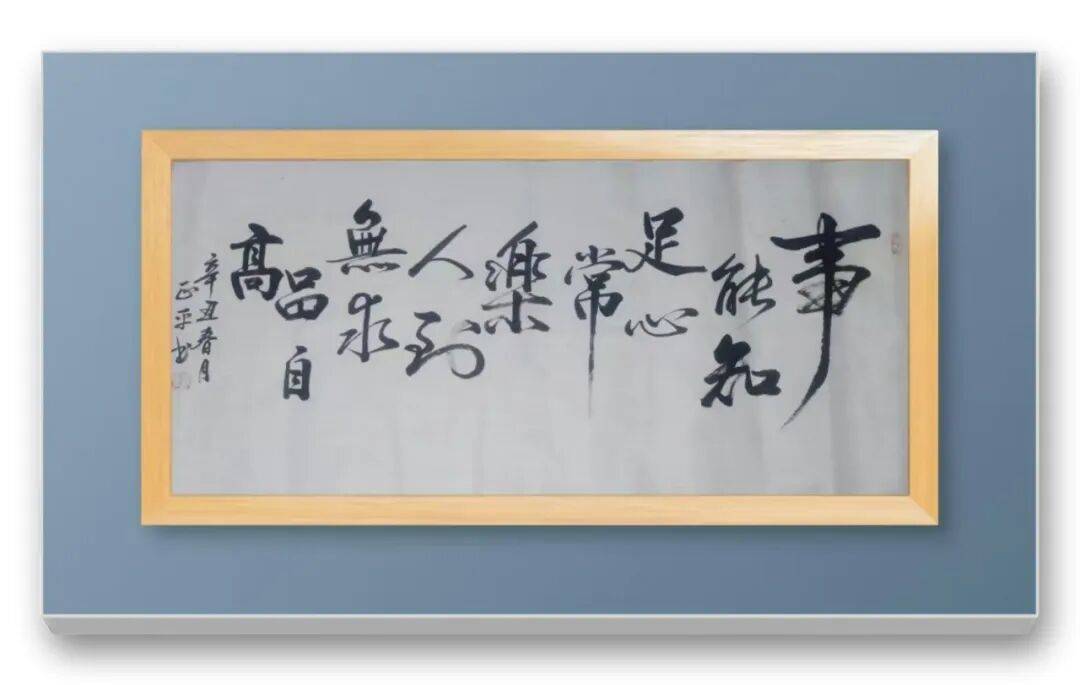 事
能知
足心
常
樂
人到
無求
品自
高
辛丑春月
正平书